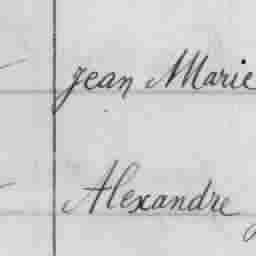 Jean Marie
Alexandre